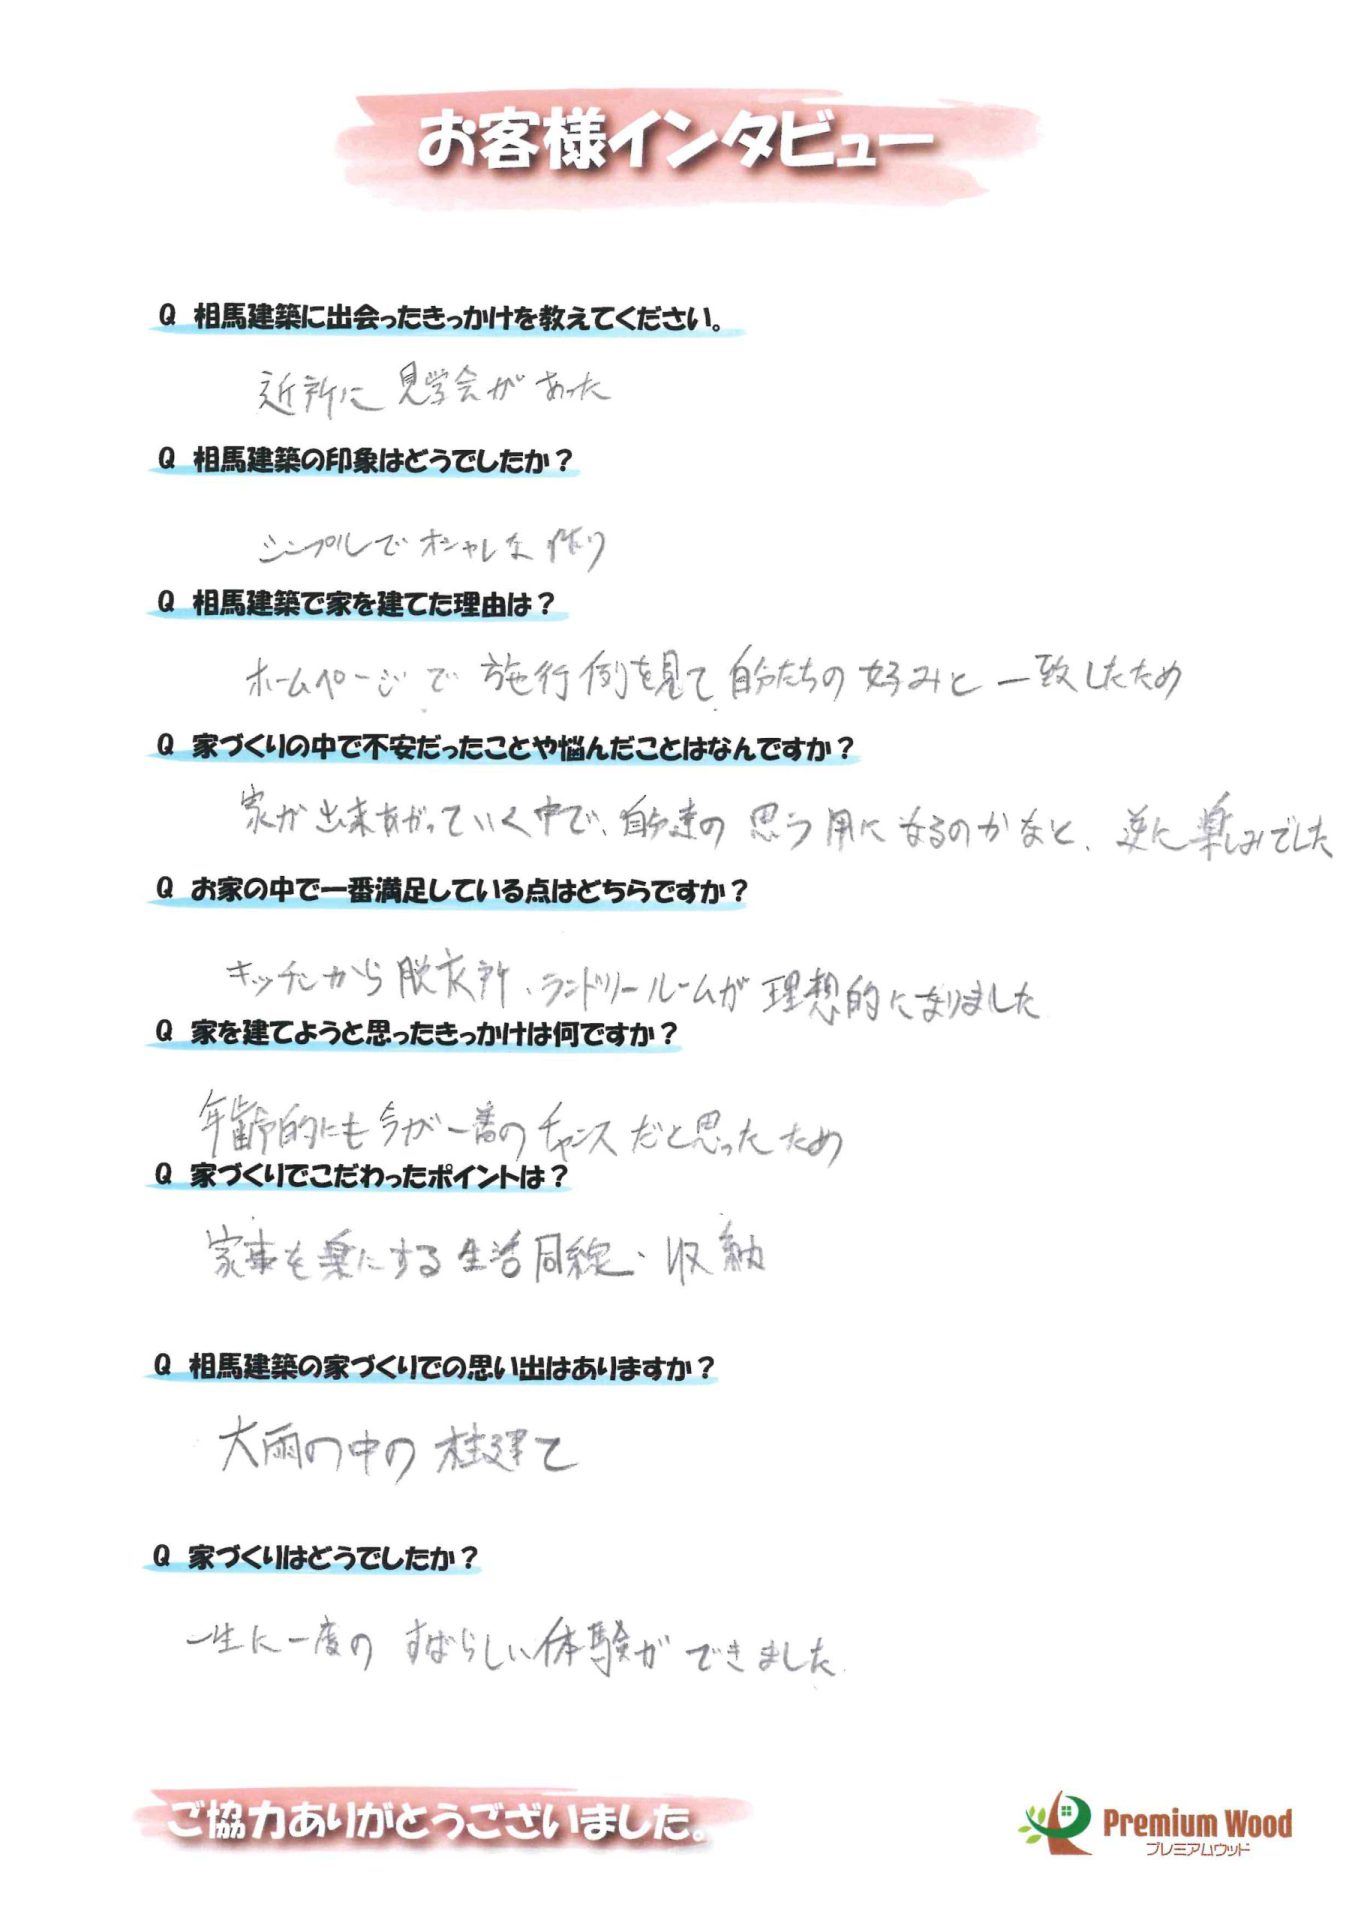 お客様インタビュー
Q 相馬建築に出会ったきっかけを教えてください。
近所に見学会があった
Q 相馬建築の印象はどうでしたか？
シンプルでオシャレな作り
Q 相馬建築で家を建てた理由は？
ホームページで施行例を見て自分たちの好みと一致したため
Q 家づくりの中で不安だったことや悩んだことはなんですか？
家が出来あがっていく中で、自分達の思う用になるのかなと、逆に楽しみでした
Q お家の中で一番満足している点はどちらですか？
キッチンから脱衣所、ランドリールームが理想的になりました
Q 家を建てようと思ったきっかけは何ですか？
年齢的にも今が一番のチャンスだと思ったため
Q 家づくりでこだわったポイントは？
家事を楽にする生活同線・収納
Q 相馬建築の家づくりでの思い出はありますか？
大雨の中の柱建て
Q 家づくりはどうでしたか？
一生に一度のすばらしい体験ができました。
ご協力ありがとうございました。
Premium Wood
プレミアムウッド